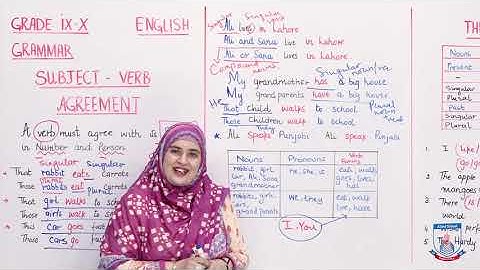 GRADE IX-X ENGLISH
GRAMMAR
SUBJECT - VERB
AGREEMENT
A verb must agree with its
in Number and Person.
Singular Singular
That rabbit eats carrots
Those rabbits eat carrots
That girl walks to school
Those girls walk to
This car goes
Those cars go
Singular Singular verb
Ali lives in Lahore
Ali and Sana live in Lahore
Ali or Sana lives in Lahore
Compound
Singular noun/verb
My grandmother has a big house
My grandparents have a big house
That child walks to school
Plural
Those children walk to school
They
Ali speaks Punjabi Ali speak Punjabi
Nouns Pronouns Verb
rabbit, girl, car, Ali, Sana, grandmother
he, she, it
eats, walks, goes, lives, has
rabbits, girls, cars, grandparents
we, they
eat, walk, live, have
I, You
TH
Nouns
Present
-
Singular
Plural
Past
Singular
Plural
1 I
2 The apple
mangoes
3 There
world
4
5 Hardy